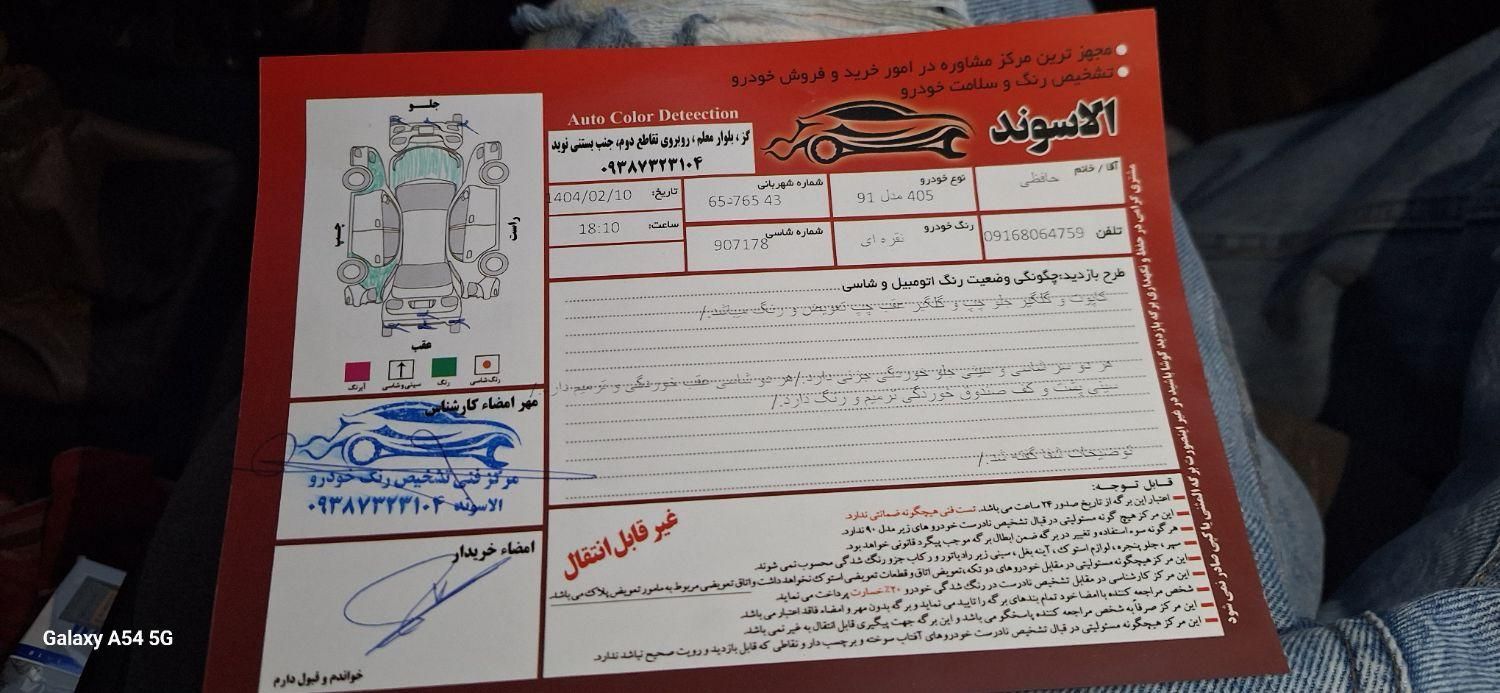 مجهز ترین مرکز مشاوره در امور خرید و فروش خودرو
تشخیص رنگ و سلامت خودرو
الاسوند
Auto Color Deteection
گز ، بلوار معلم ، روبروی تقاطع دوم، جنب بستنی نوید
۰۹۳۸۷۳۲۳۱۰۴
آقا / خانم حافظی
نوع خودرو 405 مدل 91
شماره شهربانی 43 765د65
تاریخ: 1404/02/10
تلفن 09168064759
رنگ خودرو نقره ای
شماره شاسی 907178
ساعت: 18:10
طرح بازدید:چگونگی وضعیت رنگ اتومبیل و شاسی
کاپوت و گلگیر جلو چپ و گلگیر عقب چپ تعویض و رنگ میباشد./
هر دو سر شاسی و سینی جلو خوردگی جزئی دارد./هر دو شاسی عقب خوردگی و ترمیم دارد./
سینی پشت و کف صندوق خوردگی ترمیم و رنگ دارد./
توضیحات شفا گفته شد./
جلو
چپ
راست
عقب
رنگ شاسی
رنگ
سینی و شاسی
آبرنگ
مهر امضاء کارشناس
مرکز فنی تشخیص رنگ خودرو
الاسوند ۰۹۳۸۷۳۲۳۱۰۴
امضاء خریدار
خواندم و قبول دارم
غیر قابل انتقال
قابل توجه:
اعتبار این برگه از تاریخ صدور ۲۴ ساعت می باشد. تست فنی هیچگونه ضمانتی ندارد.
این مرکز هیچ گونه مسئولیتی در قبال تشخیص نادرست خودرو های زیر مدل ۹۰ ندارد.
هر گونه سوء استفاده و تغییر در برگه ضمن ابطال برگه موجب پیگرد قانونی خواهد بود.
سپر ، جلو پنجره ، لوازم استوک ، آینه بغل ، سینی زیر رادیاتور و رکاب جزو رنگ شدگی محسوب نمی شوند.
این مرکز هیچگونه مسئولیتی در مقابل خودرو های دو تکه،تعویض اتاق و قطعات تعویضی استوک نخواهد داشت و اتاق تعویضی مربوط به مامور تعویض پلاک می باشد.
این مرکز کارشناسی در مقابل تشخیص نادرست در رنگ شدگی خودرو ۲۰٪ خسارت پرداخت می نماید.
شخص مراجعه کننده با امضا خود تمام بندهای برگه را تایید می نماید و برگه بدون مهر و امضاء فاقد اعتبار می باشد.
این مرکز صرفاً به شخص مراجعه کننده پاسخگو می باشد و این برگه جهت پیگیری قابل انتقال به غیر نمی باشد.
این مرکز هیچگونه مسئولیتی در قبال تشخیص نادرست خودرو های آفتاب سوخته و برچسب دار و نقاطی که قابل بازدید و رویت صحیح نباشد ندارد.
مشتری گرامی در حفظ و نگهداری برگه بازدید کوشا باشید در غیر اینصورت برگه المثنی یا کپی صادر نمی شود
Galaxy A54 5G